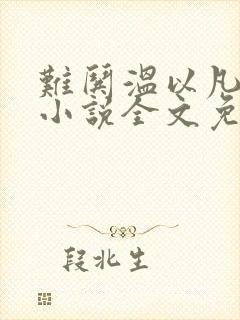 難鬨溫以凡
小說全文免
段北生